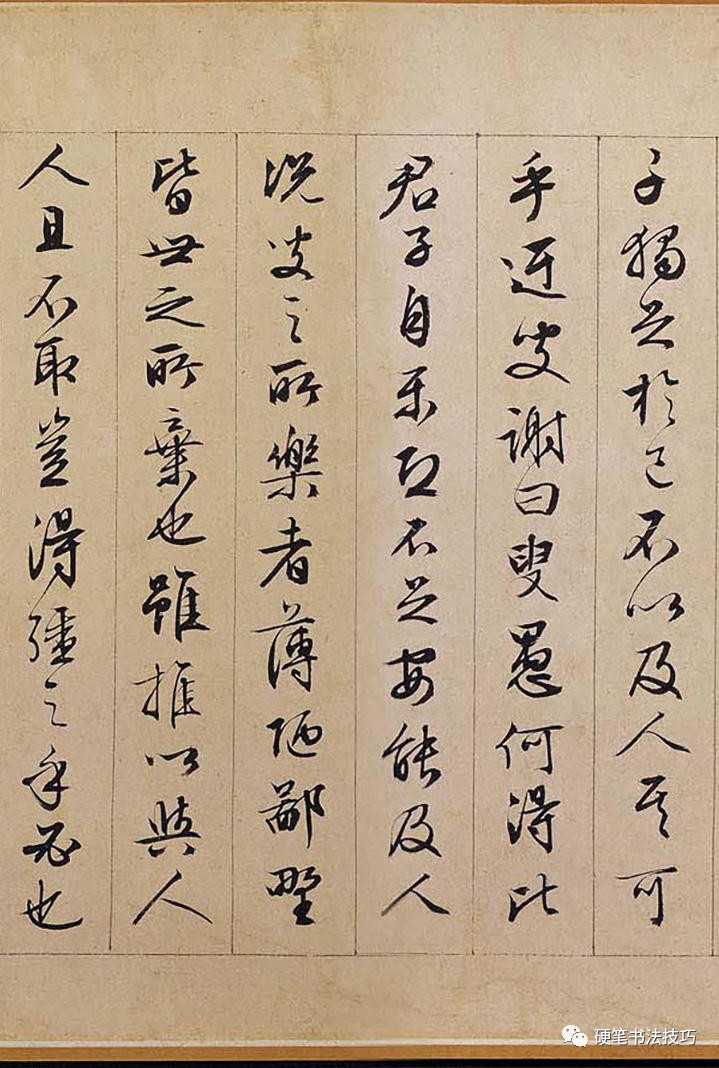 子獨足於己不以及人其可
乎迂叟謝曰叟愚何得比
君子自樂恐不足安能及人
況叟之所樂者薄陋鄙野
皆世之所棄也雖推以與人
人且不取豈得彊之乎必也
硬笔书法技巧